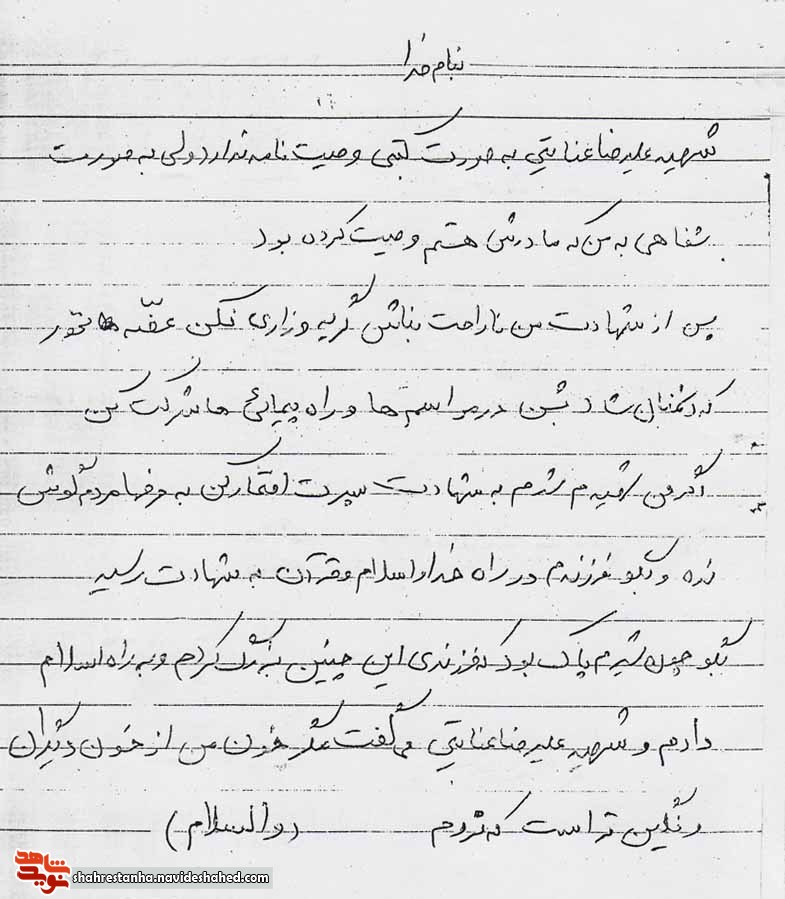 بنام خدا
شهید علیرضا عنایتی به صورت کتبی وصیت نامه ندارد ولی به صورت
شفاهی به من که مادرش هستم وصیت کرده بود
پس از شهادت من ناراحت نباش گریه و زاری نکن غصّه نخور
که دشمنان شاد بشن در مراسم ها و راه پیمائی ها شرکت کن
اگر من شهیدم شدم به شهادت پسرت افتخار کن به حرفها مردم گوش
نده و بگو فرزندم در راه خدا و اسلام و قرآن به شهادت رسید
بگو چون شیرم پاک بود که فرزندی این چنین بزرگ کردم و به راه اسلام
دادم و شهید علیرضا عنایتی می گفت مگر خون من از خون دیگران
رنگین تر است که نروم (والسلام)
نوید شاهد
shahrestanha.navideshahed.com